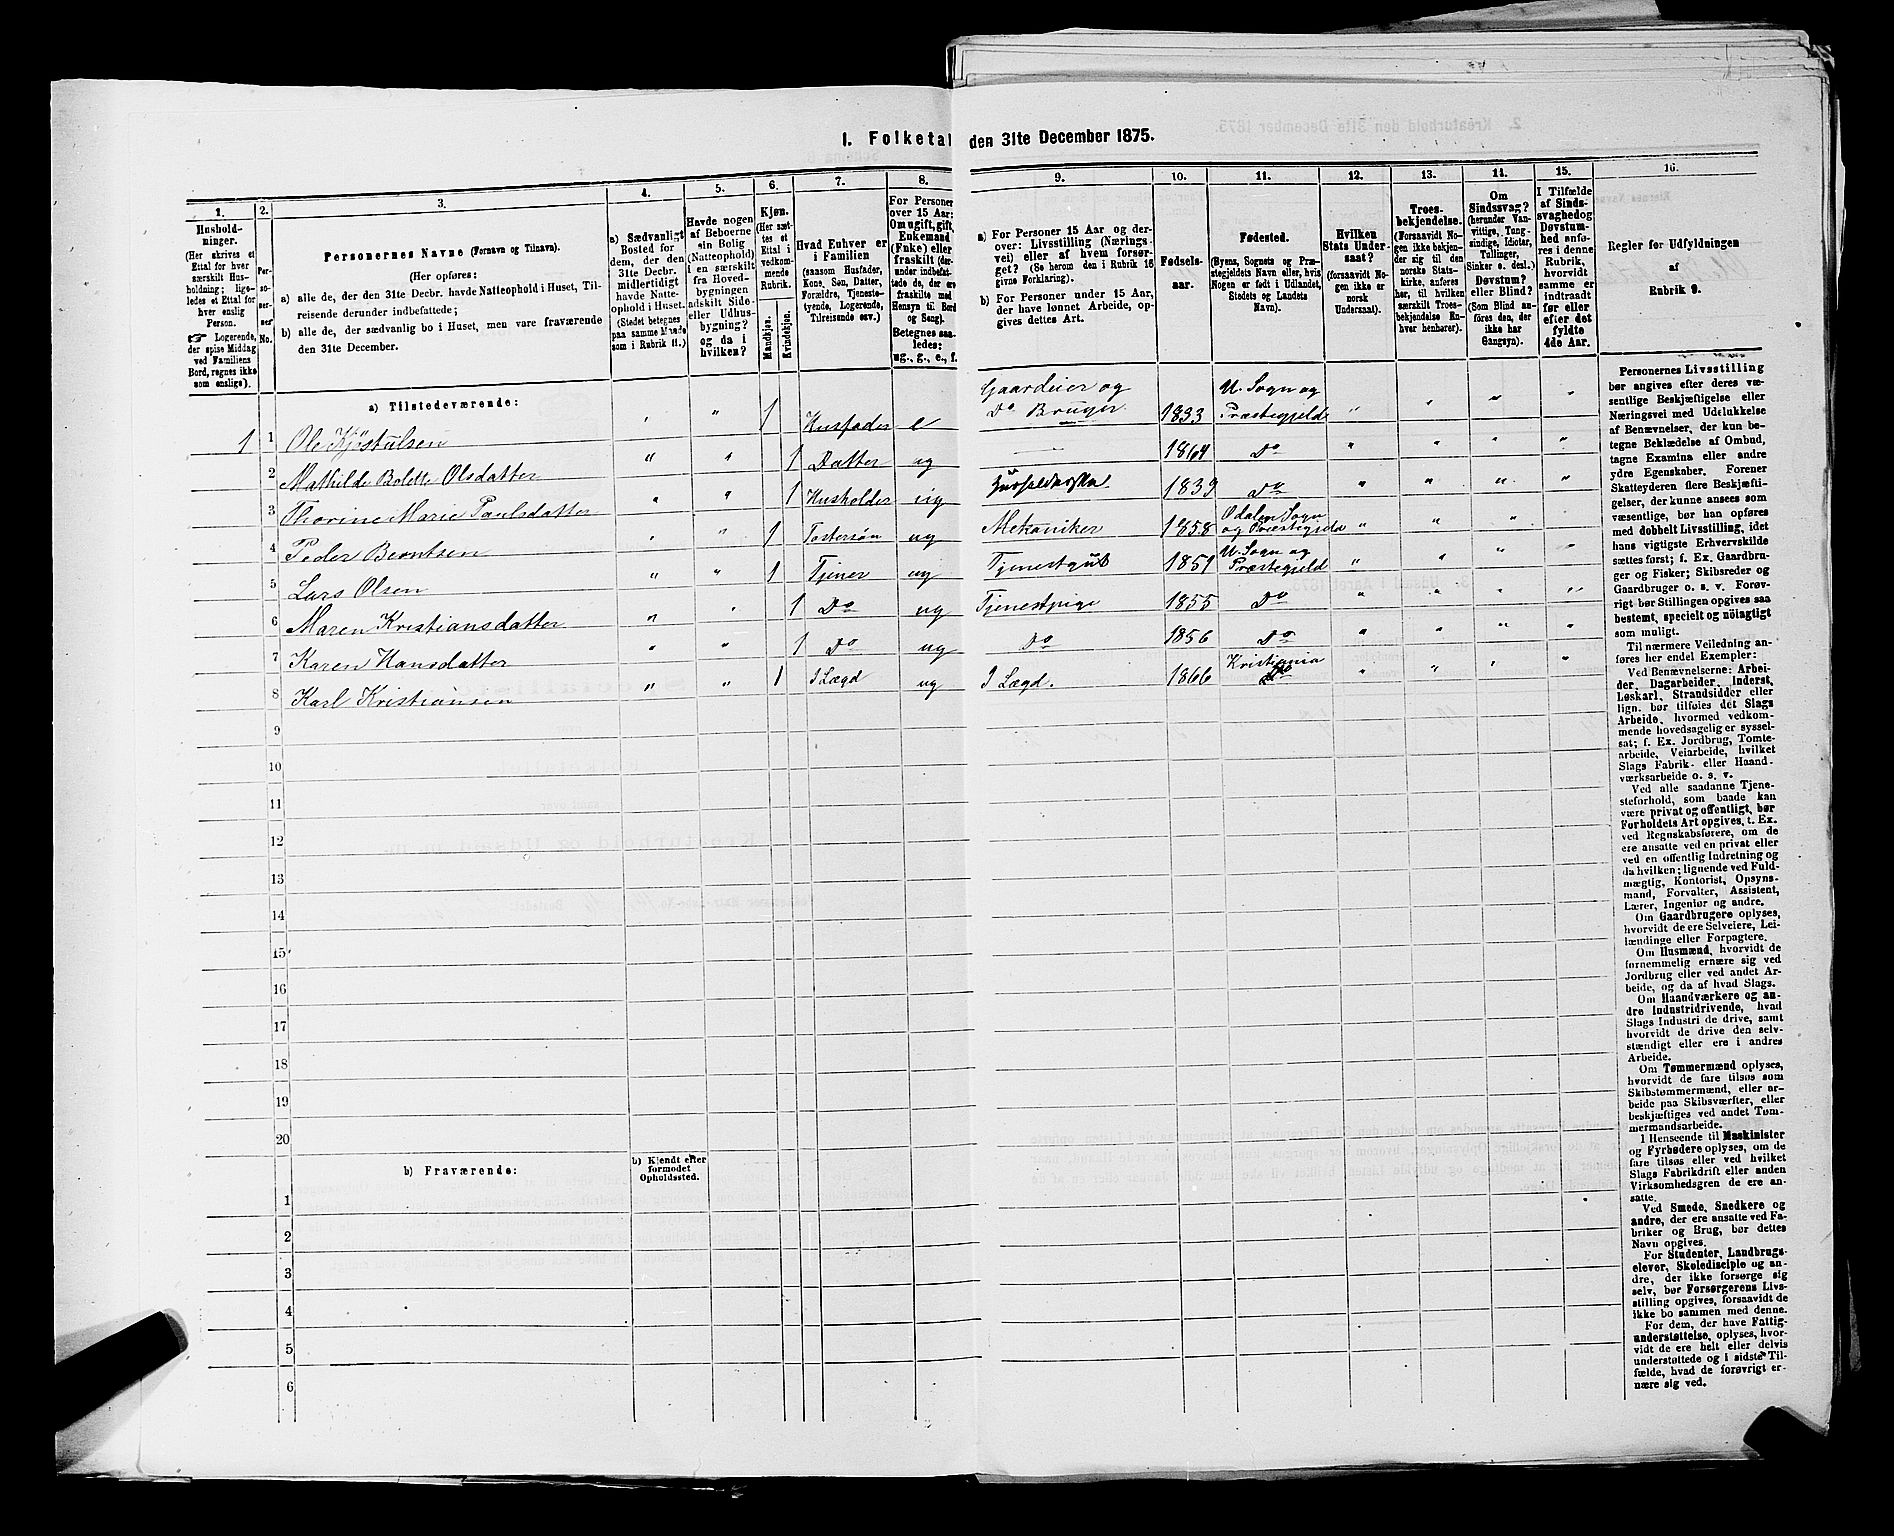 1. Folketal den 31te December 1875.
1.
Husholdninger.
(Her skrives et
Ettal for hver
særskilt Husholdning;
ligeledes et Ettal for
hver enslig
Person.
☞ Logerende,
der spise Middag
ved Familiens
Bord, regnes ikke
som enslige).
2.
Personernes No.
3.
Personernes Navne (Fornavn og Tilnavn).
(Her opføres:
a) alle de, der den 31te Decbr. havde Natteophold i Huset, Tilreisende derunder indbefattede;
b) alle de, der sædvanlig bo i Huset, men vare fraværende
den 31te December.
4.
a) Sædvanligt
Bosted for
dem, der den
31te Decbr.
midlertidigt
havde Natteophold i Huset.
(Stedet betegnes
paa samme Maade
som i Rubrik 11.)
5.
Havde nogen
af Beboerne
sin Bolig
(Natteophold)
i en særskilt
fra Hovedbygningen
adskilt Side-
eller Udhusbygning?
og da i
hvilken?
6.
Kjøn.
(Her sættes et
Ettal i
vedkommende
Rubrik.
Mandkjøn.
Kvindekjøn.
7.
Hvad Enhver er
i Familien
(saasom Husfader,
Kone, Søn, Datter,
Forældre, Tjenestetyende, Logerende,
Tilreisende osv.)
8.
For Personer
over 15 Aar:
Om ugift, gift,
Enkemand
(Enke) eller
fraskilt
Betegnes saaledes:
ug., g., e., f.
9.
a) For Personer 15 Aar og derover: Livsstilling (Næringsvei) eller af hvem forsørget? (Se herom den i Rubrik 16
givne Forklaring).
b) For Personer under 15 Aar,
der have lønnet Arbeide, opgives dettes Art.
10.
Fødselsaar.
11.
Fødested.
(Byens, Sognets og Præstegjeldets Navn eller, hvis
Nogen er født i Udlandet,
Stedets og Landets
Navn).
12.
Hvilken
Stats Undersaat?
(forsaavidt Nogen ikke er
norsk
Undersaat).
13.
Troesbekjendelse.
(Forsaavidt Nogen ikke bekjender sig til den
norske Statskirke, anføres
her, til hvilken
særskilt Troesbekjendelse Enhver henhører).
14.
Om
Sindssvag?
(herunder Vanvittige, Tungsindige, Idioter,
Tullinger,
Sinker o. desl.)
Døvstum?
eller Blind?
(Som Blind anføres den, der
ikke har
Gangsyn).
15.
I Tilfælde
af Sindssvaghed og
Døvstumhed anføres i denne
Rubrik,
hvorvidt
samme er
indtraadt
før eller
efter det
fyldte
4de Aar.
16.
Regler for Udfyldningen
af
Rubrik 9.
a) Tilstedeværende:
1 1 Ole Kjøstulsen " " 1 Husfader e Gaardeier og Do Bruger 1833 U. Sogn og Præstegjeld " " " "
2 Mathilde Bolette Olsdatter " " 1 Datter ug 1864 Do " " " "
3 Thorine Marie Paulsdatter " " 1 Husholder ug 1839 Do " " " "
4 Peder Berntsen " " 1 Fostersøn ug Mekaniker 1858 Odalen Sogn og Præstegjeld " " " "
5 Lars Olsen " " 1 Tjener ug Tjenestgut 1851 U. Sogn og Præstegjeld " " " "
6 Maren Kristiansdatter " " 1 Do ug Tjenestpige 1855 Do " " " "
7 Karen Hansdatter " " 1 Do ug Do 1856 Do " " " "
8 Karl Kristiansen " " 1 I Lægd ug I Lægd. 1866 Kristiania " " " "
9
10
11
12
13
14
15
16
17
18
19
20
b) Fraværende:
b) Kjendt eller
formodet
Opholdssted.
1
2
3
4
5
6
Personernes Livsstilling
bør angives efter deres væsentlige Beskjæftigelse eller
Næringsvei med Udelukkelse
af Benævnelser, der kun betegne Beklædelse af Ombud,
tagne Examina eller andre
ydre Egenskaber. Forener
Skatteyderen flere Beskjæftigelser, der kunne ansees som
væsentlige, bør han opføres
med dobbelt Livsstilling, idet
hans vigtigste Erhvervskilde
sættes først; f. Ex. Gaardbruger og Fisker; Skibsreder og
Gaardbruger o. s. v. Forøvrigt bør Stillingen opgives saa
bestemt, specielt og nöiagtigt
som muligt.
Til nærmere Veiledning anføres her endel Exempler:
Ved Benævnelserne: Arbeider, Dagarbeider, Inderst,
Løskarl, Strandsidder eller
lign. bør tilføies det Slags
Arbeide, hvormed vedkommende hovedsagelig er sysselsat; f. Ex. Jordbrug, Tomtearbeide, Veiarbeide, hvilket
Slags Fabrik- eller Haandværksarbeide o. s. v.
Ved alle saadanne Tjenesteforhold, som baade kan
være privat og offentligt, bør
Forholdets Art opgives, t. Ex.
ved Regnskabsførere, om de
ere ansatte ved en privat eller
ved en offentlig Indretning og
da hvilken; lignende ved Fuldmægtig, Kontorist, Opsynsmand, Forvalter, Assistent,
Lærer, Ingeniør og andre.
Om Gaardbrugere oplyses,
hvorvidt de ere Selveiere, Leilændinge eller Forpagtere.
Om Husmænd, hvorvidt de
fornemmelig ernære sig ved
Jordbrug eller ved andet Arbeide, og da af hvad Slags.
Om Haandværkere og andre Industridrivende, hvad
Slags Industri de drive, samt
hvorvidt de drive den selvstændigt eller ere i andres
Arbeide.
Om Tømmermænd oplyses,
hvorvidt de fare tilsøs som
Skibstømmermænd, eller arbeide paa Skibsværfter, eller
beskjæftiges ved andet Tømmermandsarbeide.
I Henseende til Maskinister
og Fyrbødere oplyses, om de
fare tilsøs eller ved hvilket
Slags Fabrikdrift eller anden
Virksomhedsgren de ere ansatte.
Ved Smede, Snedkere og
andre, der ere ansatte ved Fabriker og Brug, bør dettes
Navn opgives.
For Studenter, Landbrugselever, Skoledisciple og andre, der ikke forsørge sig
selv, bør Forsørgerens Livsstilling opgives, forsaavidt de
ikke bo sammen med denne.
For dem, der have Fattigunderstøttelse, oplyses, hvorvidt de ere helt eller delvis
understøttede og i sidste Tilfælde, hvad de forøvrigt ernære sig ved.